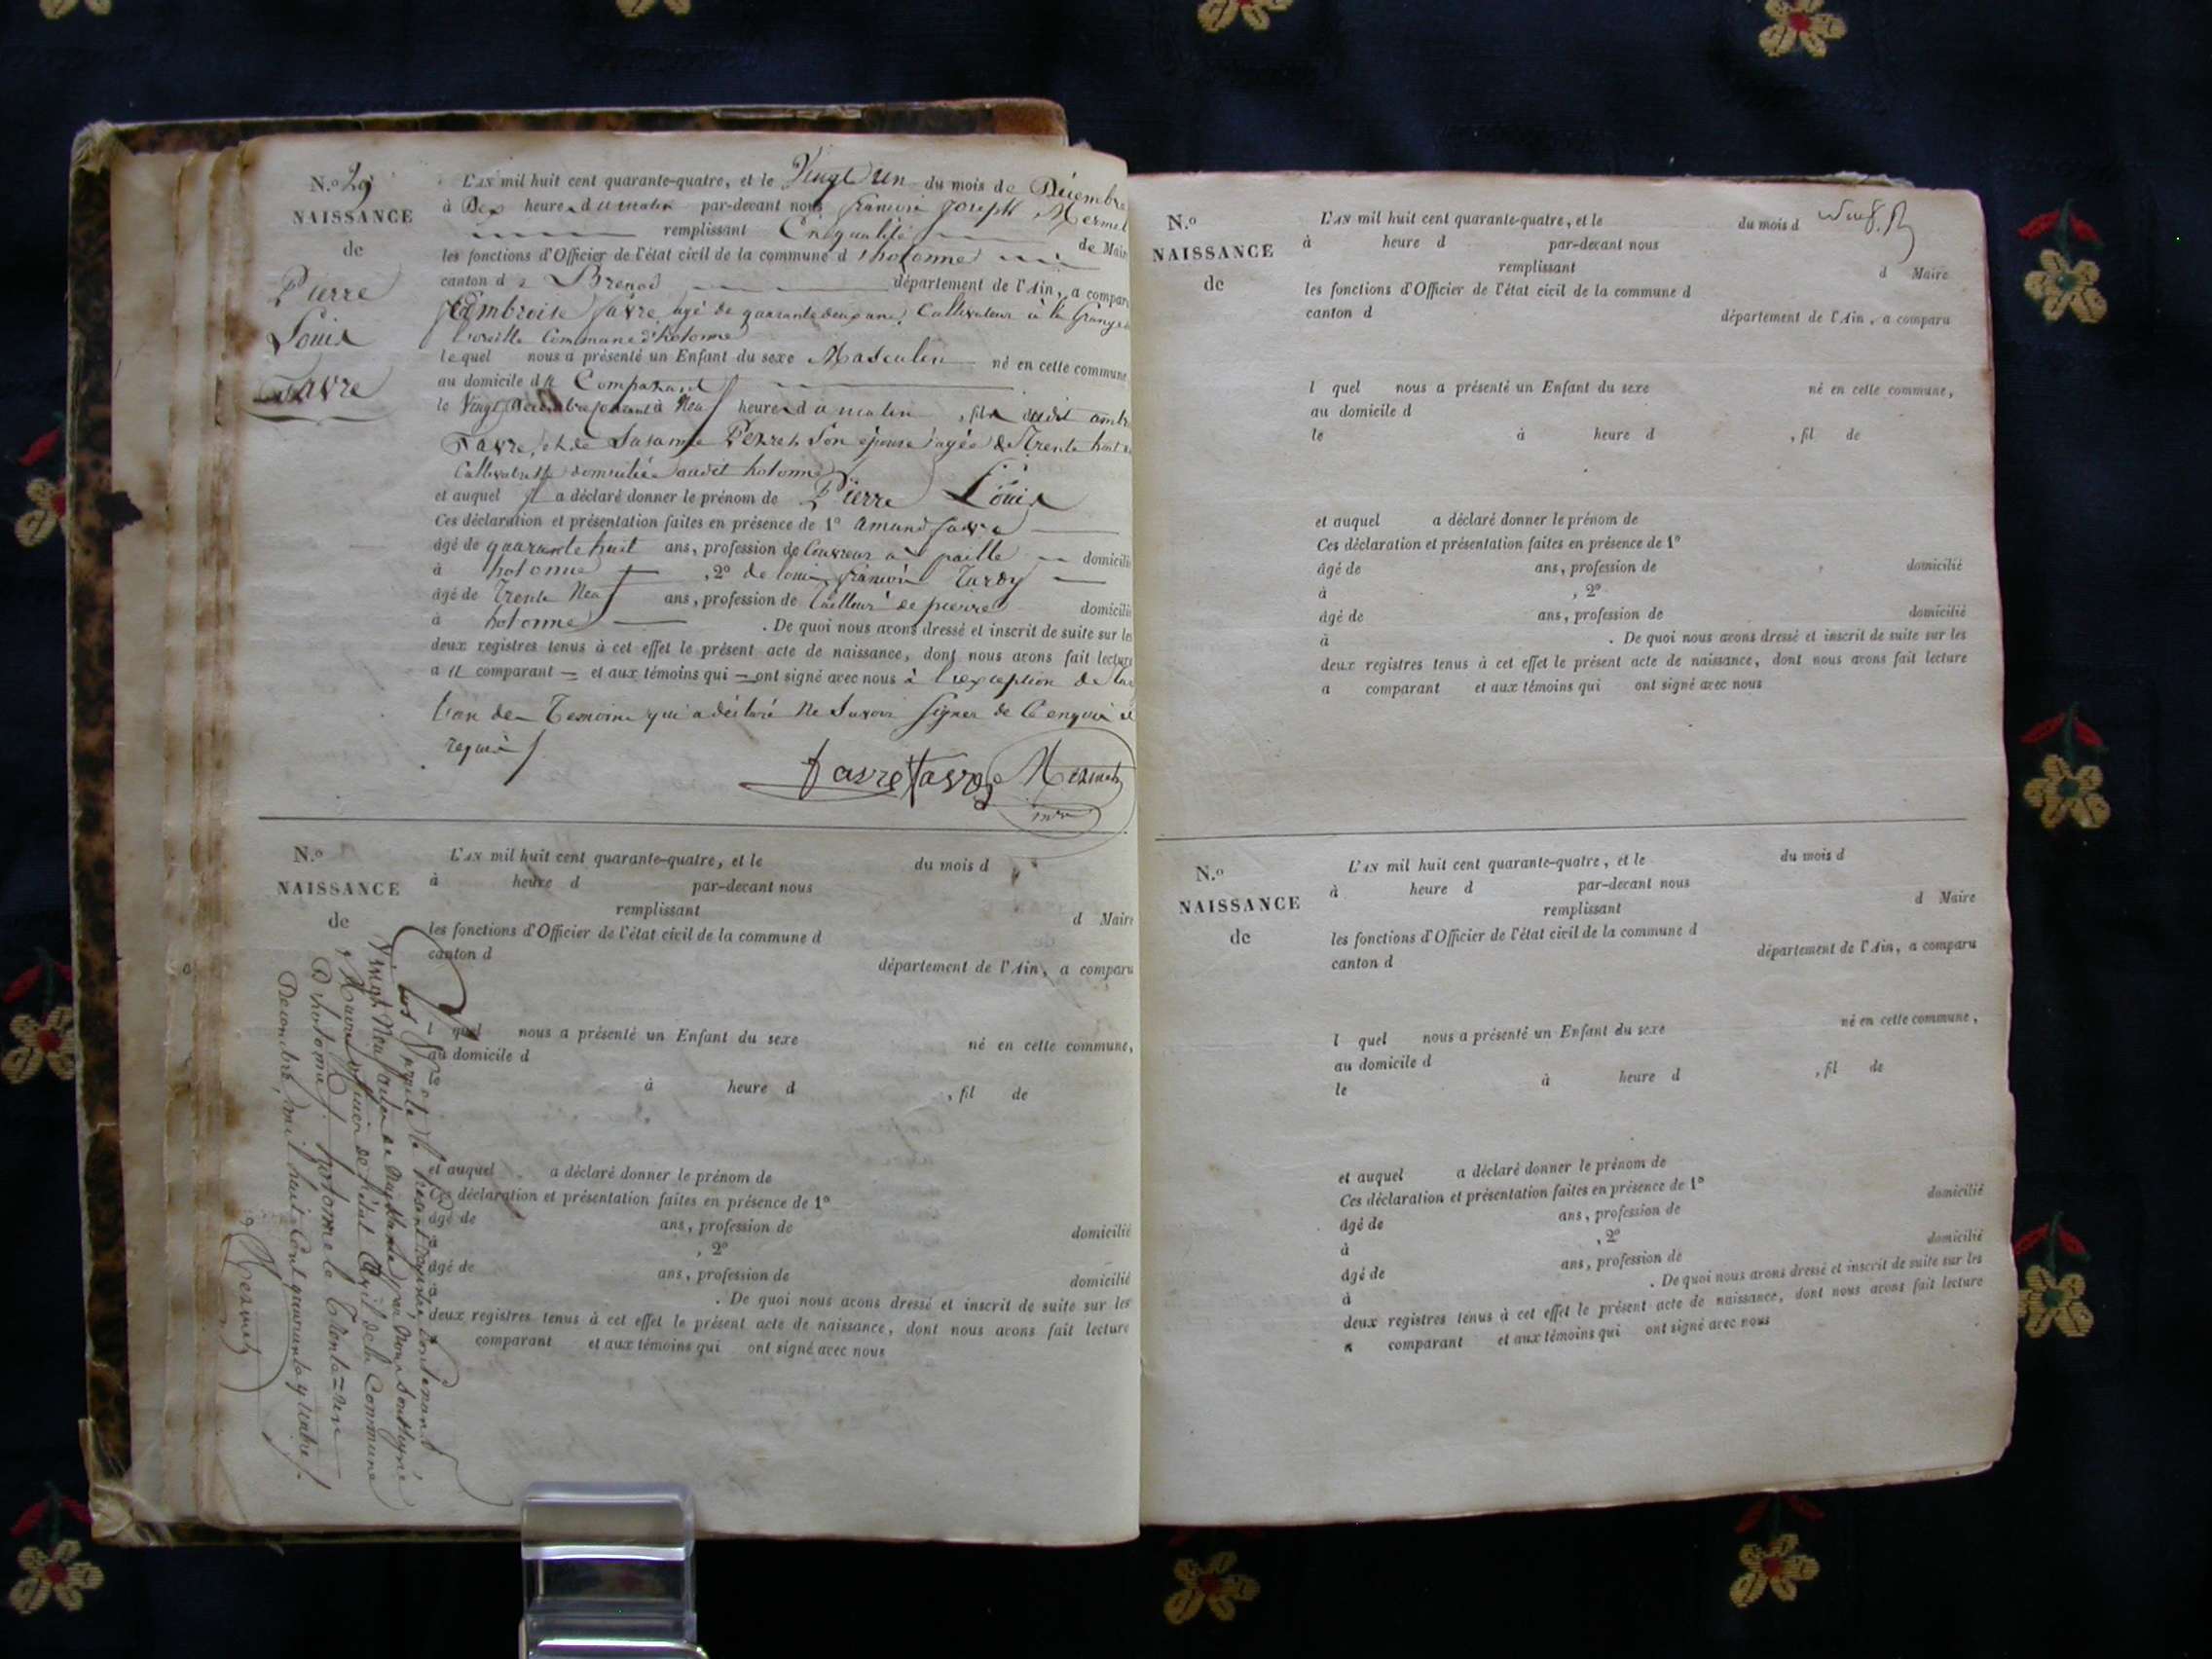 N.º 29
NAISSANCE
de
Pierre
Louis
Favre
L'AN mil huit cent quarante-quatre, et le Vingt un du mois de Décembre
à Dix heures du matin par-devant nous françois joseph Mermet
remplissant En qualité de Maire
les fonctions d'Officier de l'état civil de la commune d'hotonne
canton de Brenod département de l'Ain, a comparu
Ambroise favre agé de quarante deux ans, Cultivateur à la Grange
Commune d'hotonne
lequel nous a présenté un Enfant du sexe Masculin né en cette commune,
au domicile du Comparant
le Vingt Décembre courant à Neuf heures du matin, fils dudit
Favre, et de Susanne Perret Son épouse agée de Trente huit
Cultivatrice domiciliée audit hotonne
et auquel il a déclaré donner le prénom de Pierre Louis
Ces déclaration et présentation faites en présence de 1º Amand favre
âgé de quarante huit ans, profession de Couvreur à paille domicilié
à hotonne, 2º de louis françois Tardy
âgé de Trente Neuf ans, profession de tailleur de pierre domicilié
à hotonne. De quoi nous avons dressé et inscrit de suite sur les
deux registres tenus à cet effet le présent acte de naissance, dont nous avons fait lecture
au comparant et aux témoins qui ont signé avec nous à l'exception de
l'un des Temoins qui a déclaré Ne Savoir signer de Ce enquis et
requis
favre favre Mermet
mre
N.º
NAISSANCE
de
L'AN mil huit cent quarante-quatre, et le du mois d
à heure d par-devant nous
remplissant d Maire
les fonctions d'Officier de l'état civil de la commune d
canton d département de l'Ain, a comparu
quel nous a présenté un Enfant du sexe né en cette commune,
au domicile d
à heure d , fil de
et auquel a déclaré donner le prénom de
Ces déclaration et présentation faites en présence de 1º
âgé de ans, profession de domicilié
, 2º
âgé de ans, profession de domicilié
. De quoi nous avons dressé et inscrit de suite sur les
deux registres tenus à cet effet le présent acte de naissance, dont nous avons fait lecture
comparant et aux témoins qui ont signé avec nous
Clos le présent registre Contenant
Vingt Neuf actes de Naissance par Nous Soussigné
Maire officier de l'état Civil de la Commune
D'hotonne hotonne le Trente = un
Décembre, mil huit Cent quarante quatre
Mermet
N.º
NAISSANCE
de
L'AN mil huit cent quarante-quatre, et le du mois d
à heure d par-devant nous
remplissant d Maire
les fonctions d'Officier de l'état civil de la commune d
canton d département de l'Ain, a comparu
l quel nous a présenté un Enfant du sexe né en cette commune,
au domicile d
le à heure d , fil de
et auquel a déclaré donner le prénom de
Ces déclaration et présentation faites en présence de 1º
âgé de ans, profession de domicilié
à , 2º
âgé de ans, profession de domicilié
à . De quoi nous avons dressé et inscrit de suite sur les
deux registres tenus à cet effet le présent acte de naissance, dont nous avons fait lecture
a comparant et aux témoins qui ont signé avec nous
N.º
NAISSANCE
de
L'AN mil huit cent quarante-quatre, et le du mois d
à heure d par-devant nous
remplissant d Maire
les fonctions d'Officier de l'état civil de la commune d
canton d département de l'Ain, a comparu
l quel nous a présenté un Enfant du sexe né en cette commune,
au domicile d
le à heure d , fil de
et auquel a déclaré donner le prénom de
Ces déclaration et présentation faites en présence de 1º
âgé de ans, profession de domicilié
à , 2º
âgé de ans, profession de domicilié
à . De quoi nous avons dressé et inscrit de suite sur les
deux registres tenus à cet effet le présent acte de naissance, dont nous avons fait lecture
a comparant et aux témoins qui ont signé avec nous